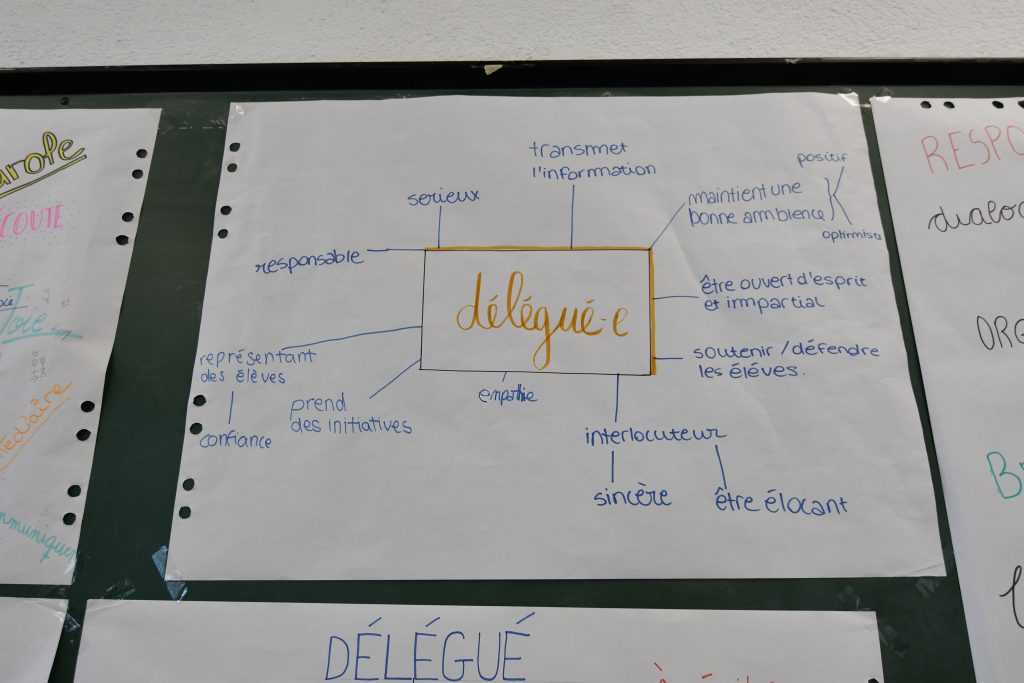 transmet
l'information
positif
serieux
maintient une
bonne ambience
optimiste
responsable
être ouvert d'esprit
et impartial
délégué·e
soutenir / défendre
les éléves.
représentant
des élèves
empathie
prend
des initiatives
confiance
interlocuteur
sincère
être élocant
ÉCOUTE
Joie
DÉLÉGUÉ
RESPO
dialog
ORG